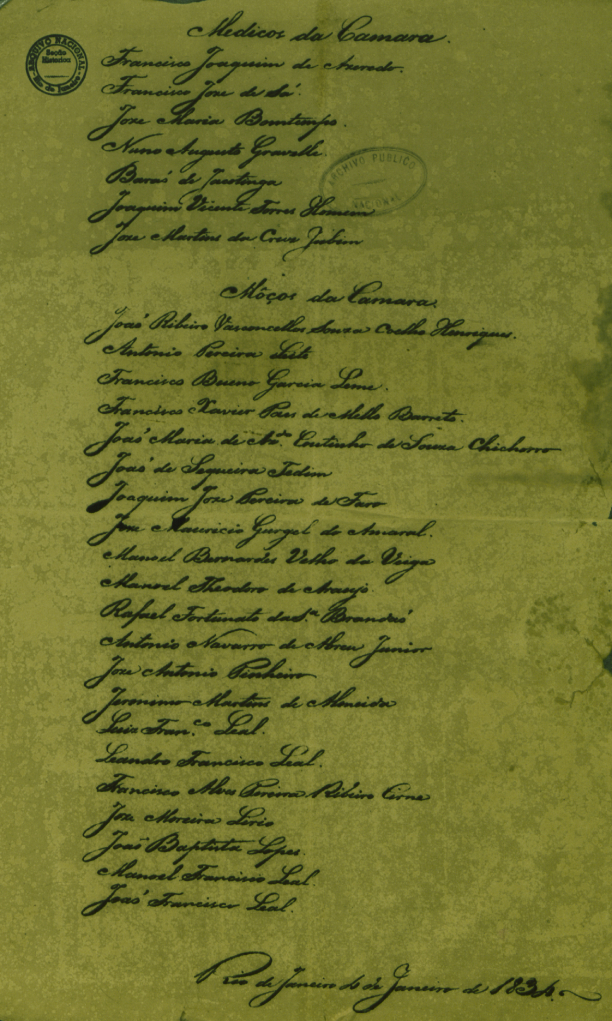 Medicos da Camara.
ARQUIVO NACIONAL
Seção
Historica
Rio de Janeiro
Francisco Joaquim de Azeredo.
Francisco Joze de Sá.
Joze Maria Bomtempo.
Nuno Augusto Gravelle.
ARCHIVO PUBLICO
NACIONAL
Baraõ de
Joaquim Vicente Torres Homem
Joze Martins da Cruz Jubim
Môços da Camara.
Joaõ Ribeiro Vasconcellos Souza Coelho Henriques.
Antonio Pereira Leite
Francisco Bueno Garcia Leme.
Francisco Xavier Paes de Mello Barreto.
Joaõ Maria de Coutinho de Souza Chichorro
Joaõ de Sequeira Tedim
Joaquim Joze Pereira de Faro
Joze Mauricio Gurgel do Amaral.
Manoel Bernardes Velho da Veiga
Manoel Theodoro de Araujo.
Rafael Fortunato da S.ª Brandaõ
Antonio Navarro de Abreu Junior
Joze Antonio Pinheiro
Jeronimo Martins de Almeida
Luiz Fran.co Leal.
Leandro Francisco Leal.
Francisco Alves Pereira Ribeiro Cirne
Joze Moreira Lirio
Joaõ Baptista Lopes.
Manoel Francisco Leal.
Joaõ Francisco Leal.
Rio de Janeiro de Janeiro de